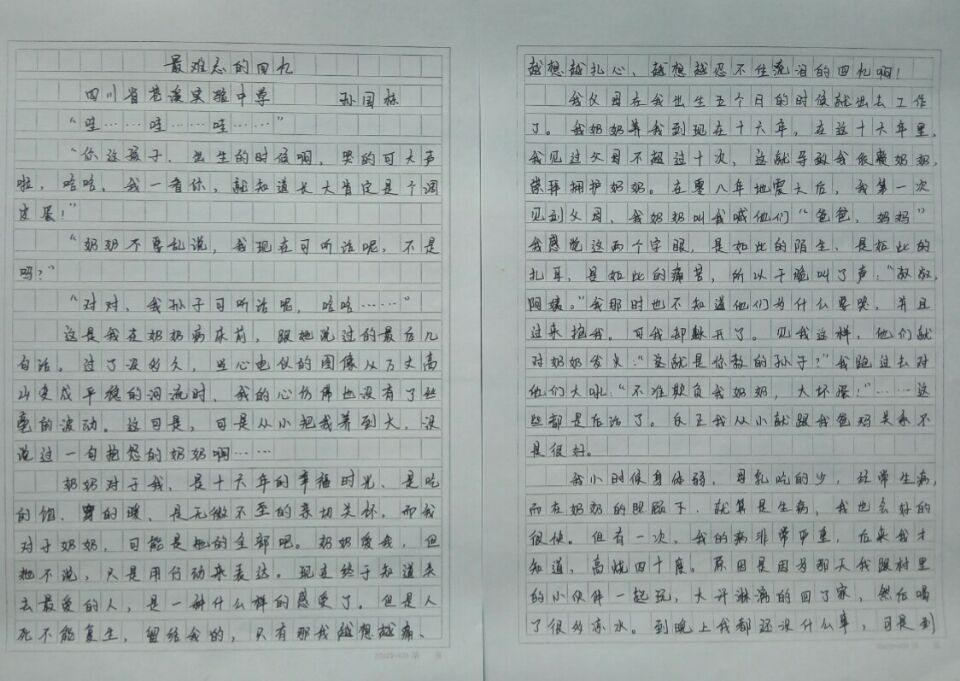 最难忘的回忆
四川省苍溪实验中学 孙国栋
“哇……哇……哇……”
“你这孩子，出生的时候啊，哭的可大声
啦，哈哈，我一看你，就知道长大肯定是个调
皮蛋！”
“奶奶不要乱说，我现在可听话呢，不是
吗？”
“对对，我孙子可听话呢，哈哈……”
这是我在奶奶病床前，跟她说过的最后几
句话。过了没多久，当心电仪的图像从万丈高
山变成平稳的河流时，我的心仿佛也没有了丝
毫的波动。这可是，可是从小把我养到大，没
说过一句抱怨的奶奶啊……
奶奶对于我，是十六年的幸福时光，是吃
的饱，穿的暖，是无微不至的亲切关怀，而我
对于奶奶，可能是她的全部吧。奶奶爱我，但
她不说，只是用行动来表达。现在终于知道失
去最爱的人，是一种什么样的感受了。但是人
死不能复生，留给我的，只有那我越想越痛、
越想越扎心、越想越忍不住流泪的回忆啊！
我父母在我出生五个月的时候就出去工作
了。我奶奶养我到现在十六年，在这十六年里，
我见过父母不超过十次，这就导致我依赖奶奶，
崇拜拥护奶奶。在零八年地震大后，我第一次
见到父母，我奶奶叫我喊他们“爸爸，妈妈”
我感觉这两个字眼，是如此的陌生，是如此的
扎耳，是如此的痛苦，所以干脆叫了声：“叔叔，
阿姨。”我那时也不知道他们为什么要哭，并且
过来抱我。可我却躲开了。见我这样，他们就
对奶奶发火：“这就是你教的孙子？”我跑过去对
他们大吼：“不准欺负我奶奶，大坏蛋！”……这
些都是后话了。反正我从小就跟我爸妈关系不
是很好。
我小时候身体弱，母乳吃的少，经常生病，
而在奶奶的照顾下，就算是生病，我也会好的
很快。但有一次，我的病非常严重，后来我才
知道，高烧四十度。原因是因为那天我跟村里
的小伙伴一起玩，大汗淋漓的回了家，然后喝
了很多凉水。到晚上我都还没什么事，可是到